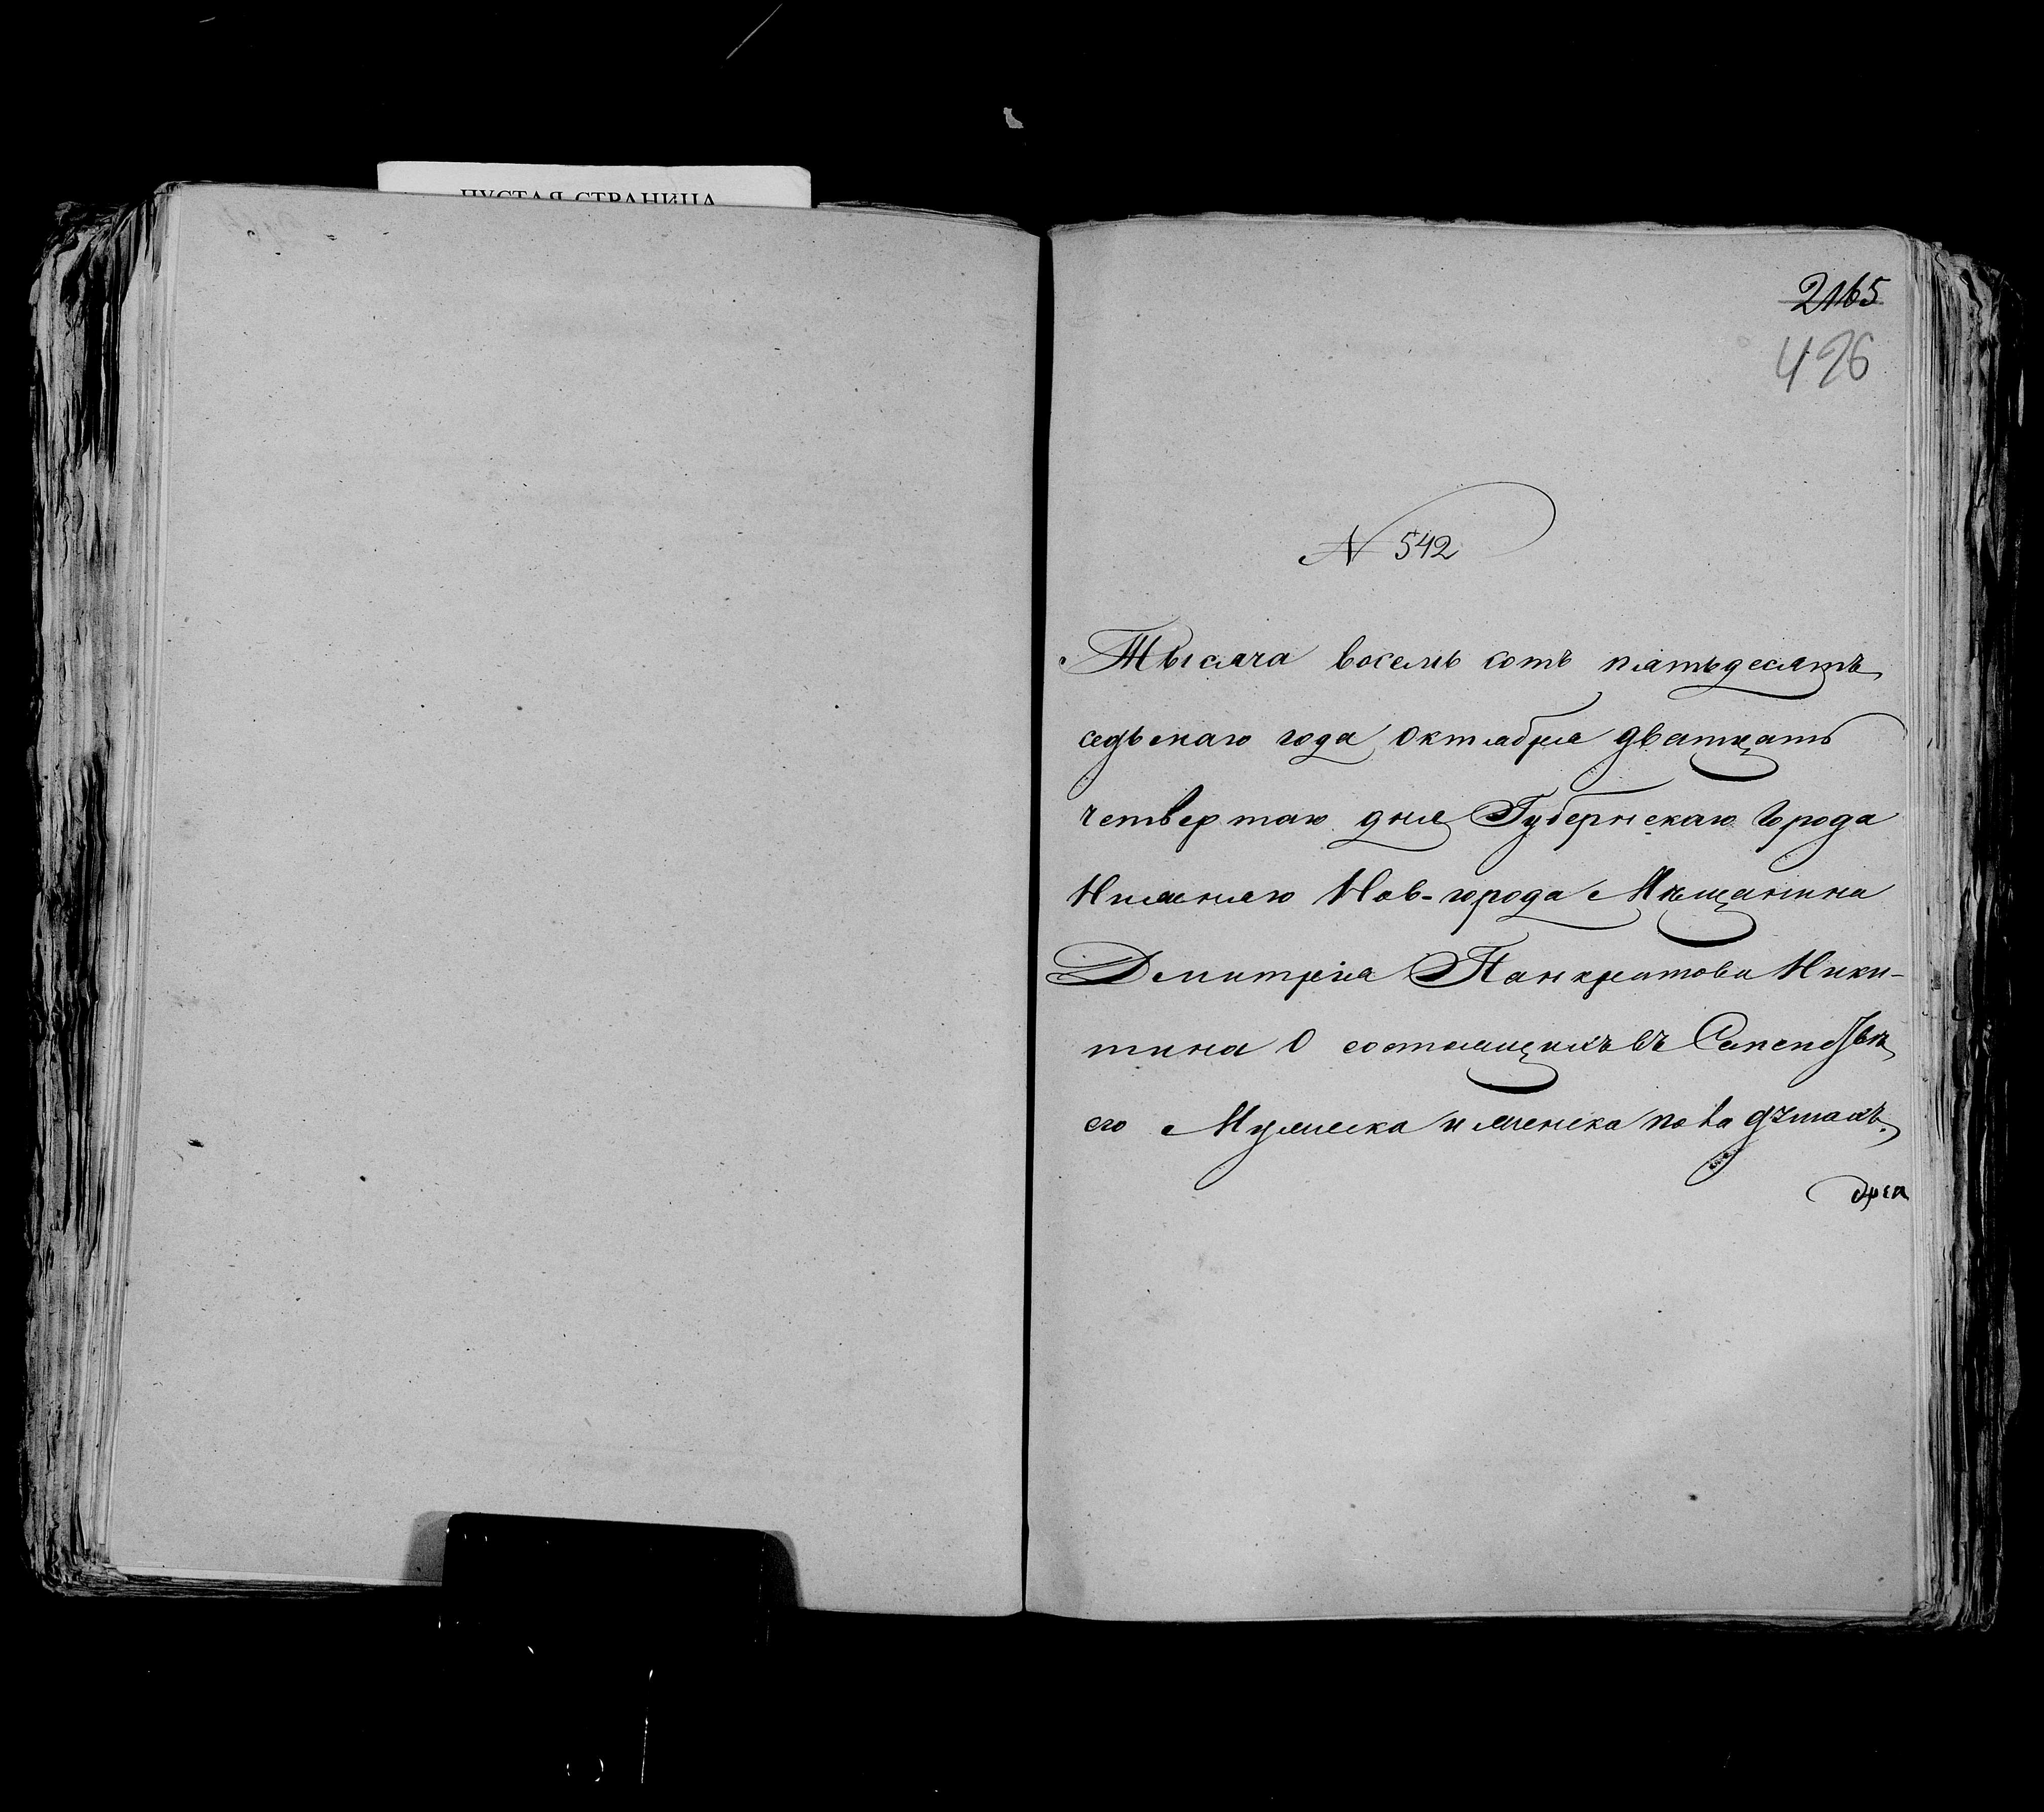 ПУСТАЯ СТРАНИЦА
2165
426
N 542
Тысяча восемь сотъ пятьдесятъ
седьмаго года Октября дватцать
четвертаго дня Губернскаго Города
Нижняго Нов-города Мѣщанина
Дмитрія Панкратова Ники-
тина О состоящихъ въ Семействѣ
его Мужеска и женска пола душахъ.